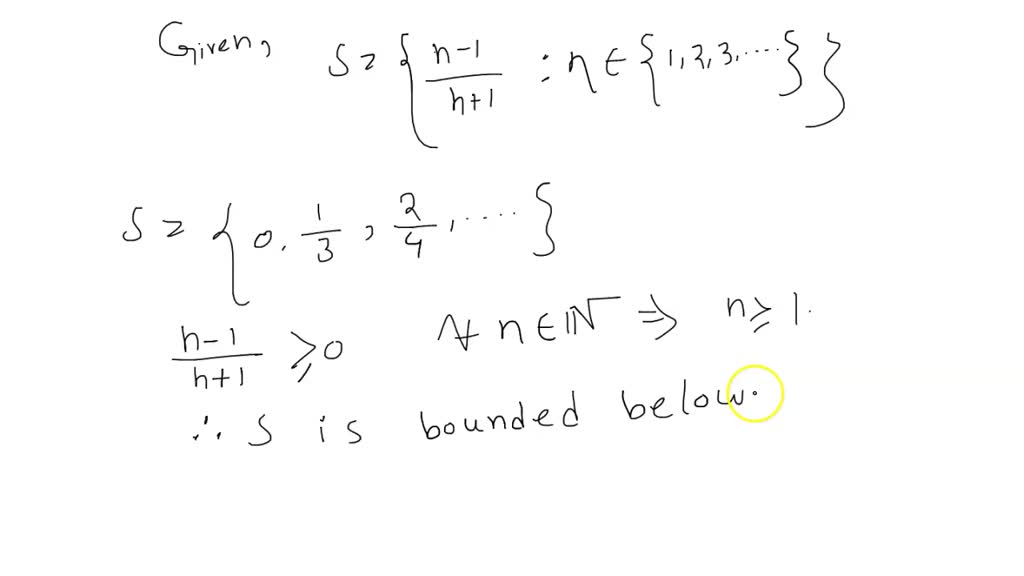 Given, S = { n-1/n+1 : n ∈ {1, 2, 3, ....} }
S = { 0, 1/3, 2/4, ..... }
n-1/n+1 ≥ 0 ∀ n ∈ ℕ ⇒ n ≥ 1.
∴ S is bounded below.